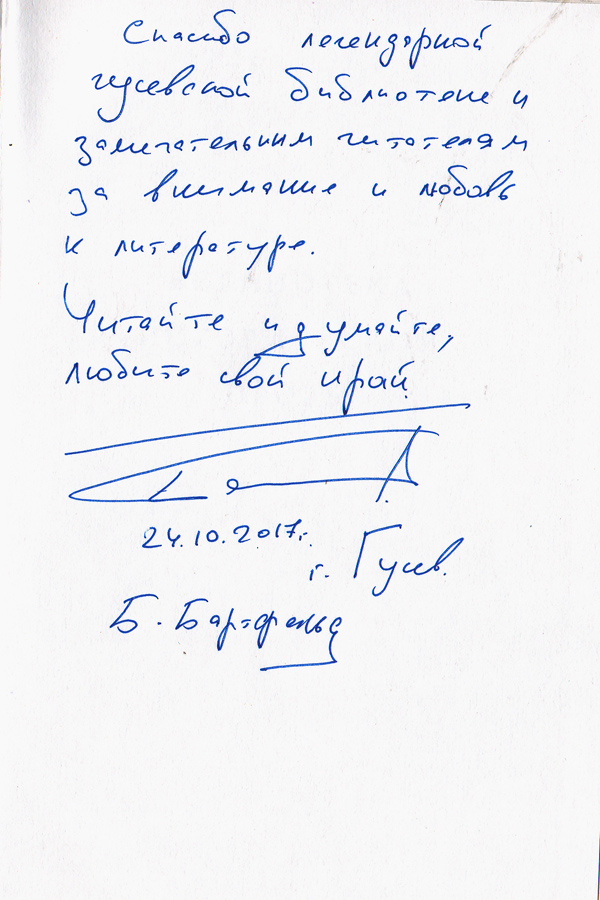 Спасибо легендарной
гусевской библиотеке и
замечательным читателям
за внимание и любовь
к литературе.
Читайте и думайте,
любите свой край.
24.10.2017г.
г. Гусев.
Б. Бартфельд